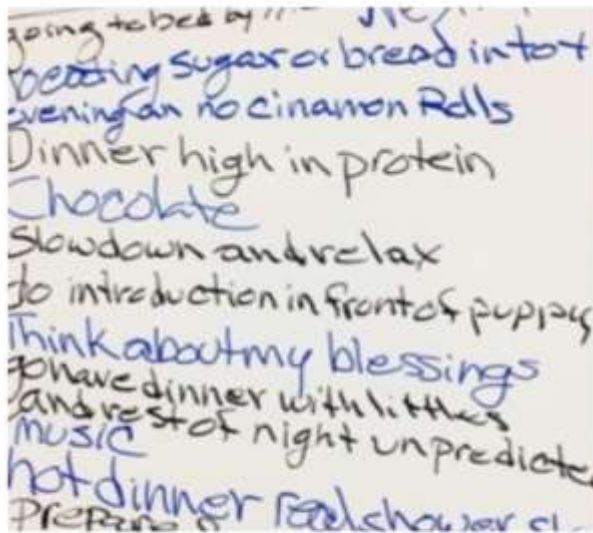 going to bed by 11
eating sugar or bread into t
evening an no cinamon Rolls
Dinner high in protein
Chocolate
Slowdown and relax
do introduction in front of puppy
Think about my blessings
go have dinner with littles
and rest of night unpredicte
music
hot dinner read shower
Prepare